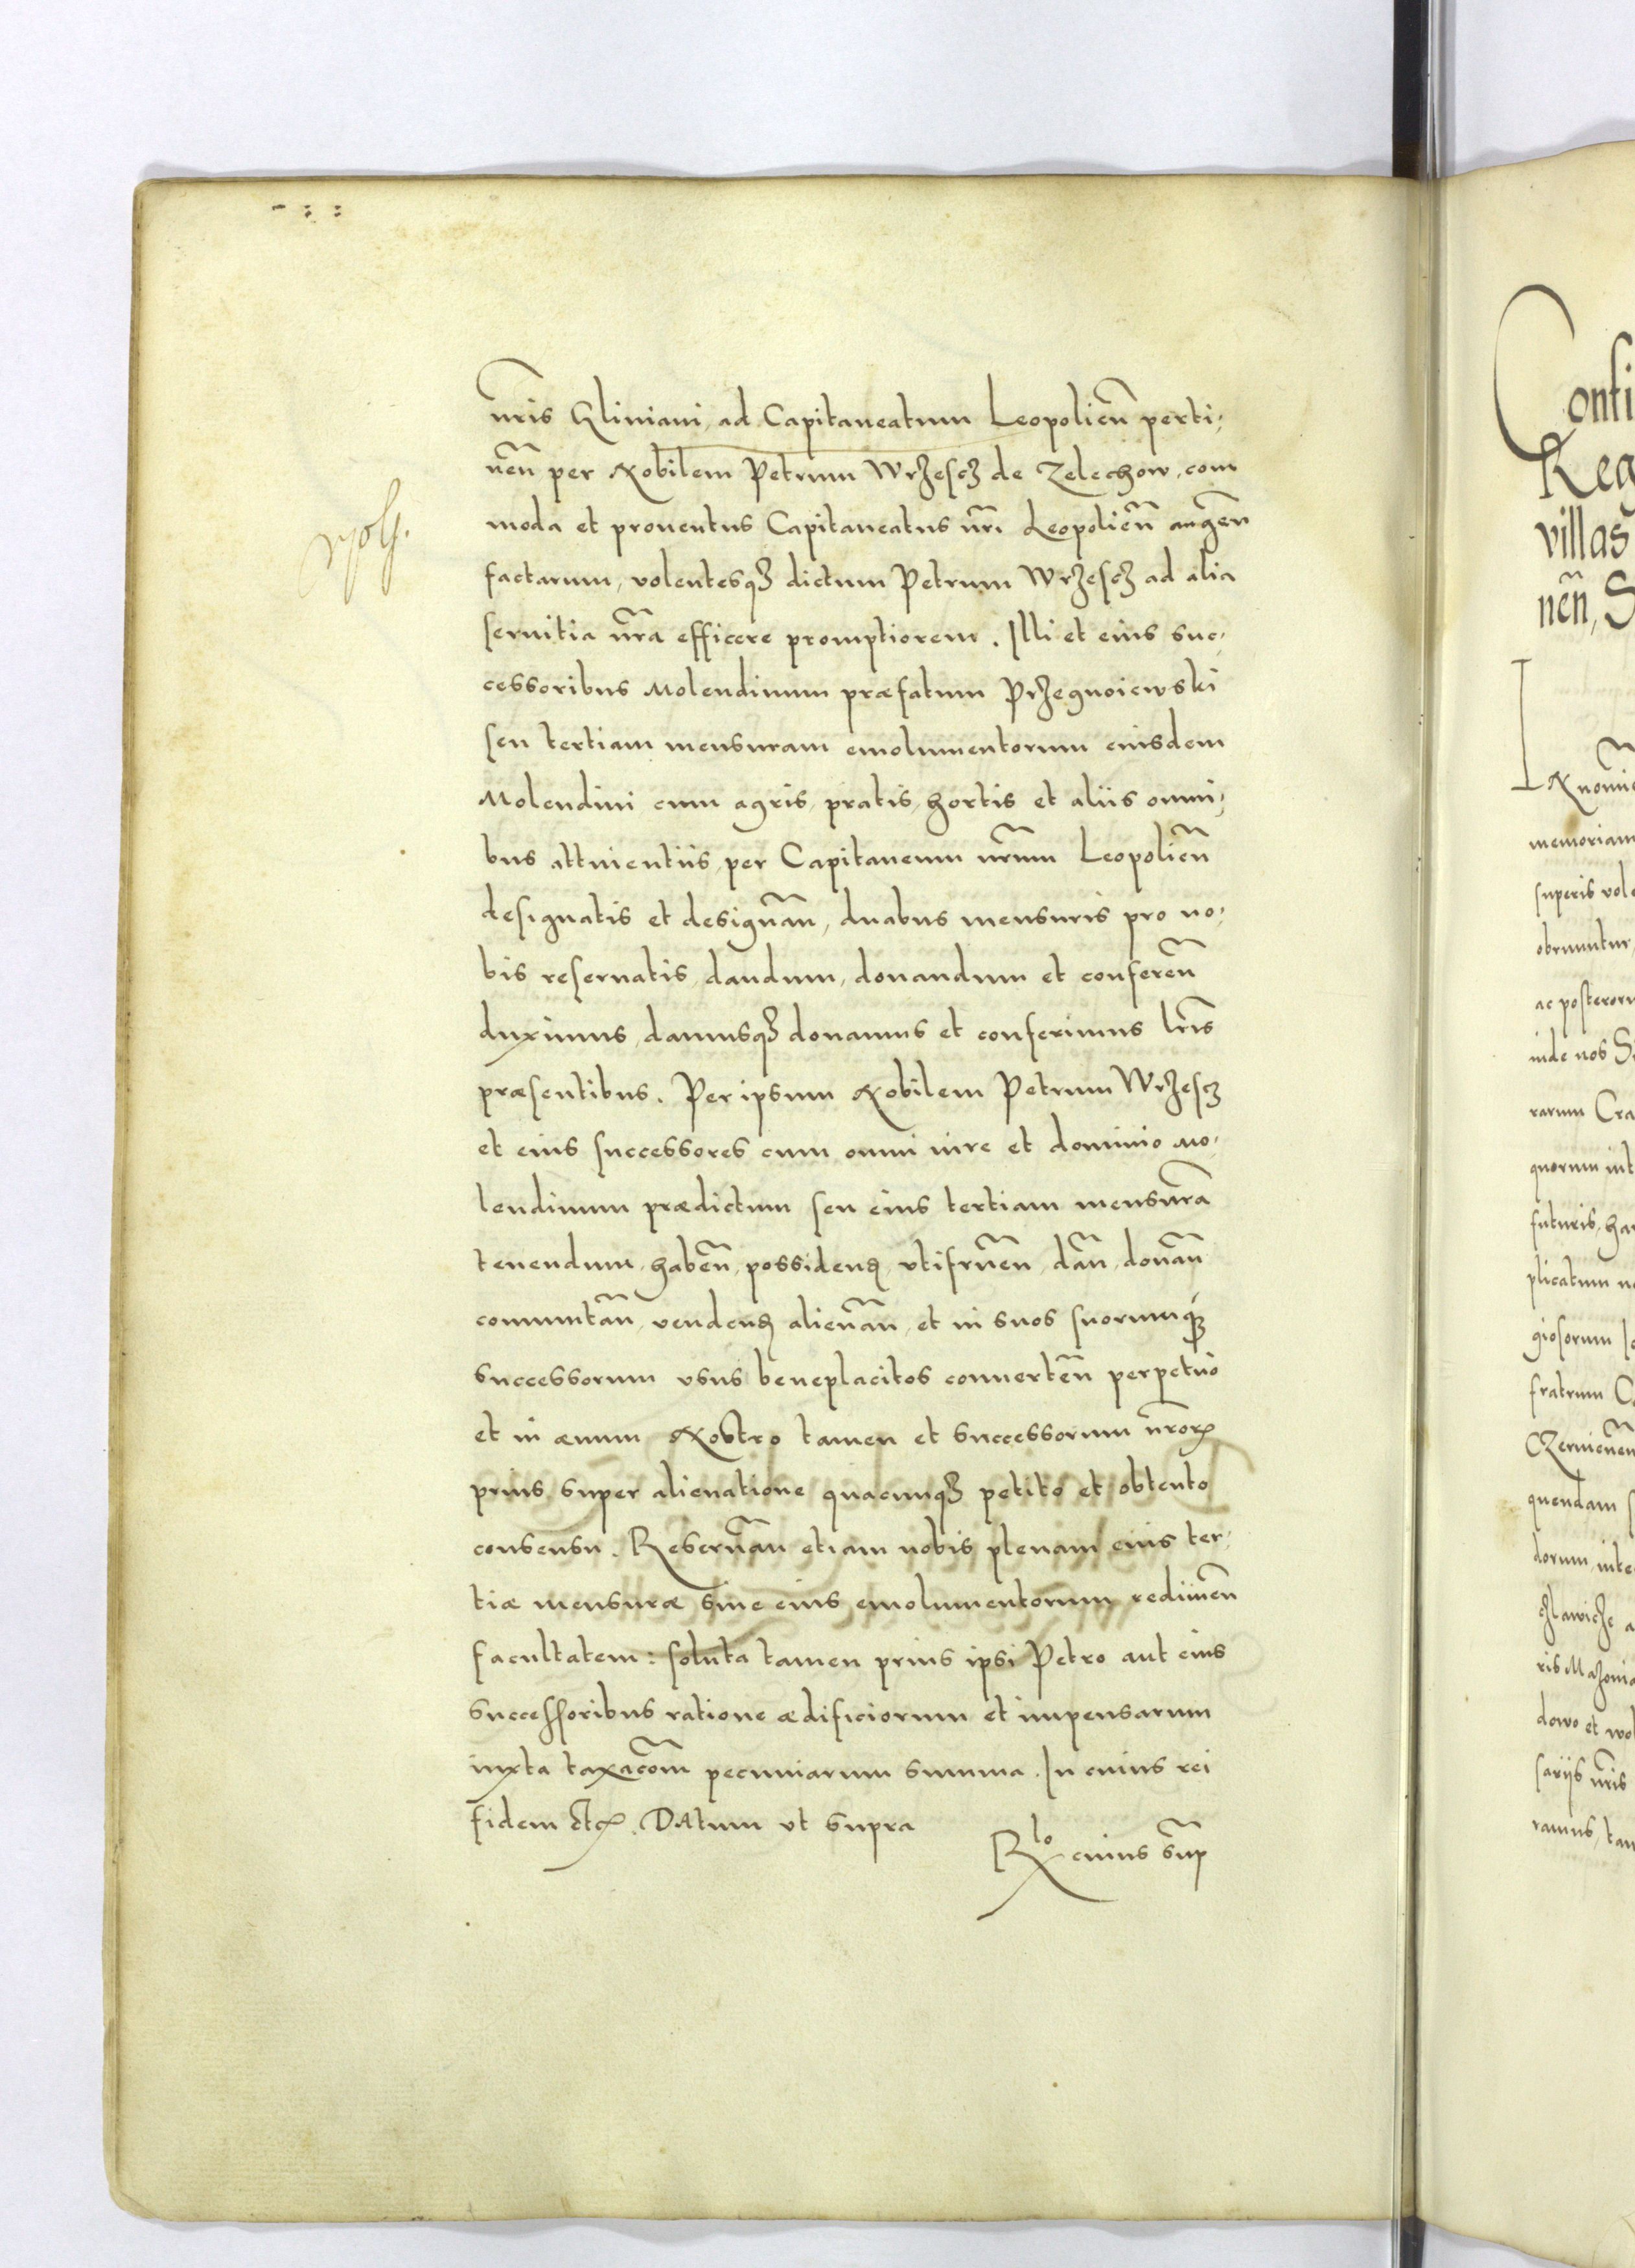 nr̃is Gliniani, ad Capitaneatum Leopolieñ perti,
neñ per Nobilem Petrum Wrzescz de Zelechow, com
moda et prouentus Capitaneatus nr̃i Leopolieñ augen
factarum, volentesq3 dictum Petrum Wrzescz ad alia
seruitia nr̃a efficere promptiorem. Illi et eius suc,
cessoribus Molendinum præfatum Przegnoiewski
seu tertiam mensuram emolumentorum eiusdem
Molendini cum agris, pratis, hortis et aliis omni,
bus attinentiis, per Capitaneum nr̃um Leopolieñ
designatis et designañ, duabus mensuris pro no,
bis reseruatis, dandum, donandum et confereñ
duximus, damusq3 donamus et conferimus lr̃is
præsentibus. Per ipsum Nobilem Petrum Wrzescz
et eius successores cum omni iure et dominio Mo,
lendinum prædictum seu eius tertiam mensurã
tenendum, habeñ, possidend, vtifrueñ, dañ, donañ
commutañ, vendend, alienañ, et in suos suorumq3
successorum vsus beneplacitos conuerteñ perpetuo
et in æuum Nostro tamen et successorum nr̃orꝝ
prius super alienatione quacunq3 petito et obtento
consensu. Reseruañ etiam nobis plenam eius ter,
tiæ mensuræ siue eius emolumentorum redimeñ
facultatem: soluta tamen prius ipsi Petro aut eius
successoribus ratione ædificiorum et impensarum
iuxta taxacõm pecuniarum summa. In cuius rei
fidem etcꝝ. DAtum vt supra
R<sup>lo</sup> cuius sup̃
Confi
Reg
villas
neñ, S
memoriam
superis vol
obruuntur,
ac posteroru
inde nos S
rarum Cra
quorum int
futuris, ha
plicatum n
giosorum
fratrum C
Czerwieñ
quendam
dorum, inte
ris Mazouia
dowo et wol
sariis nr̃is
ramus, tam